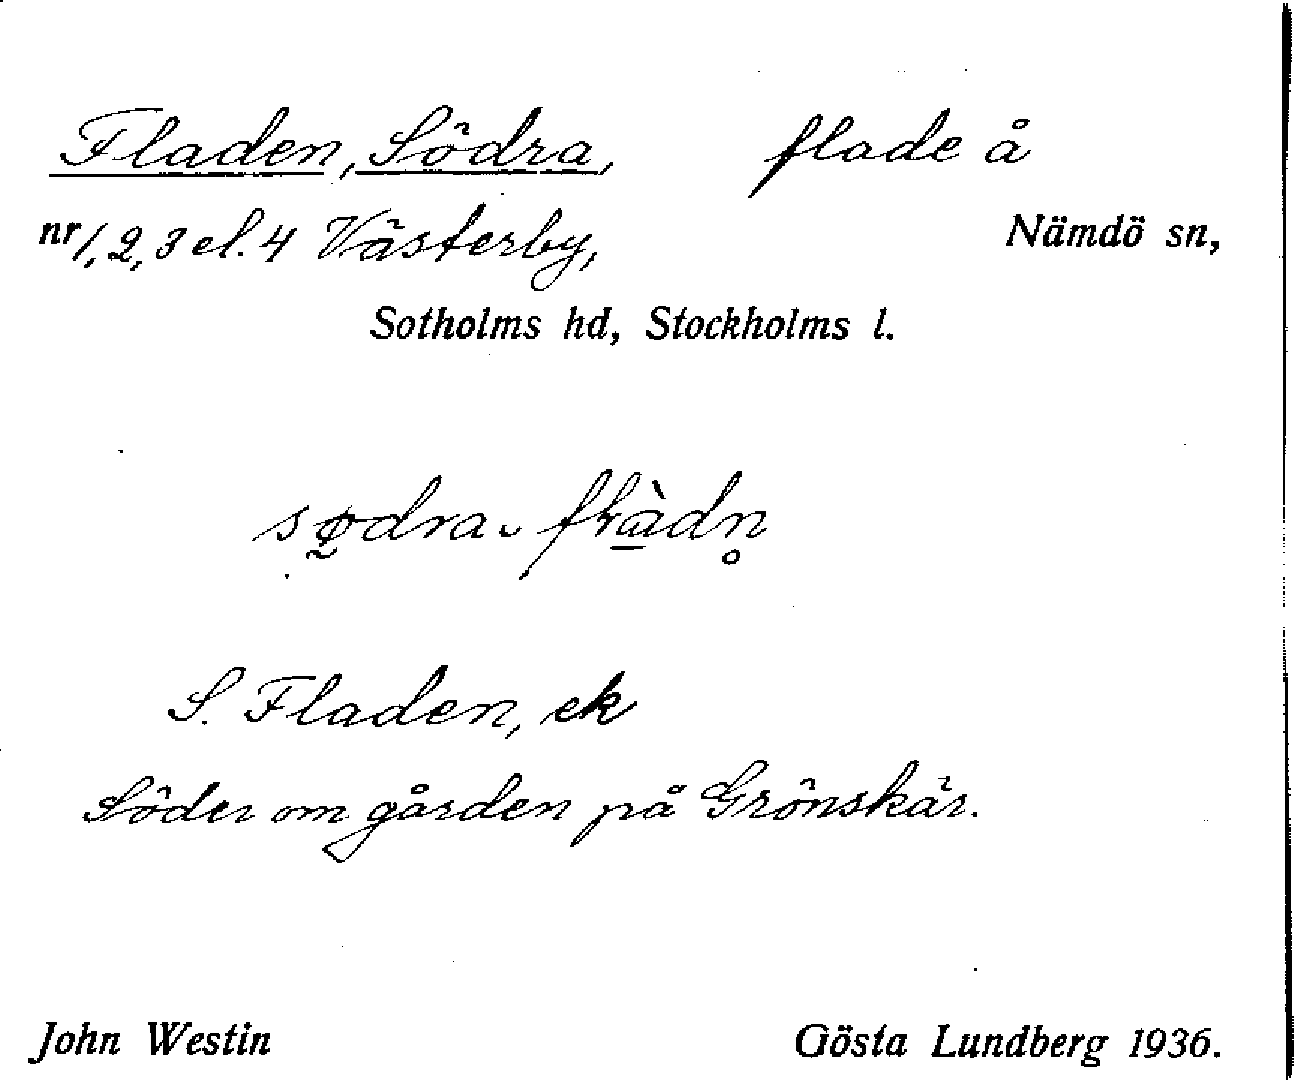 Fladen, Södra, flade å
nr 1, 2, 3 el. 4 Västerby, Nämdö sn,
Sotholms hd, Stockholms l.
S. Fladen, ek
Söder om gården på Grönskär.
John Westin Gösta Lundberg 1936.